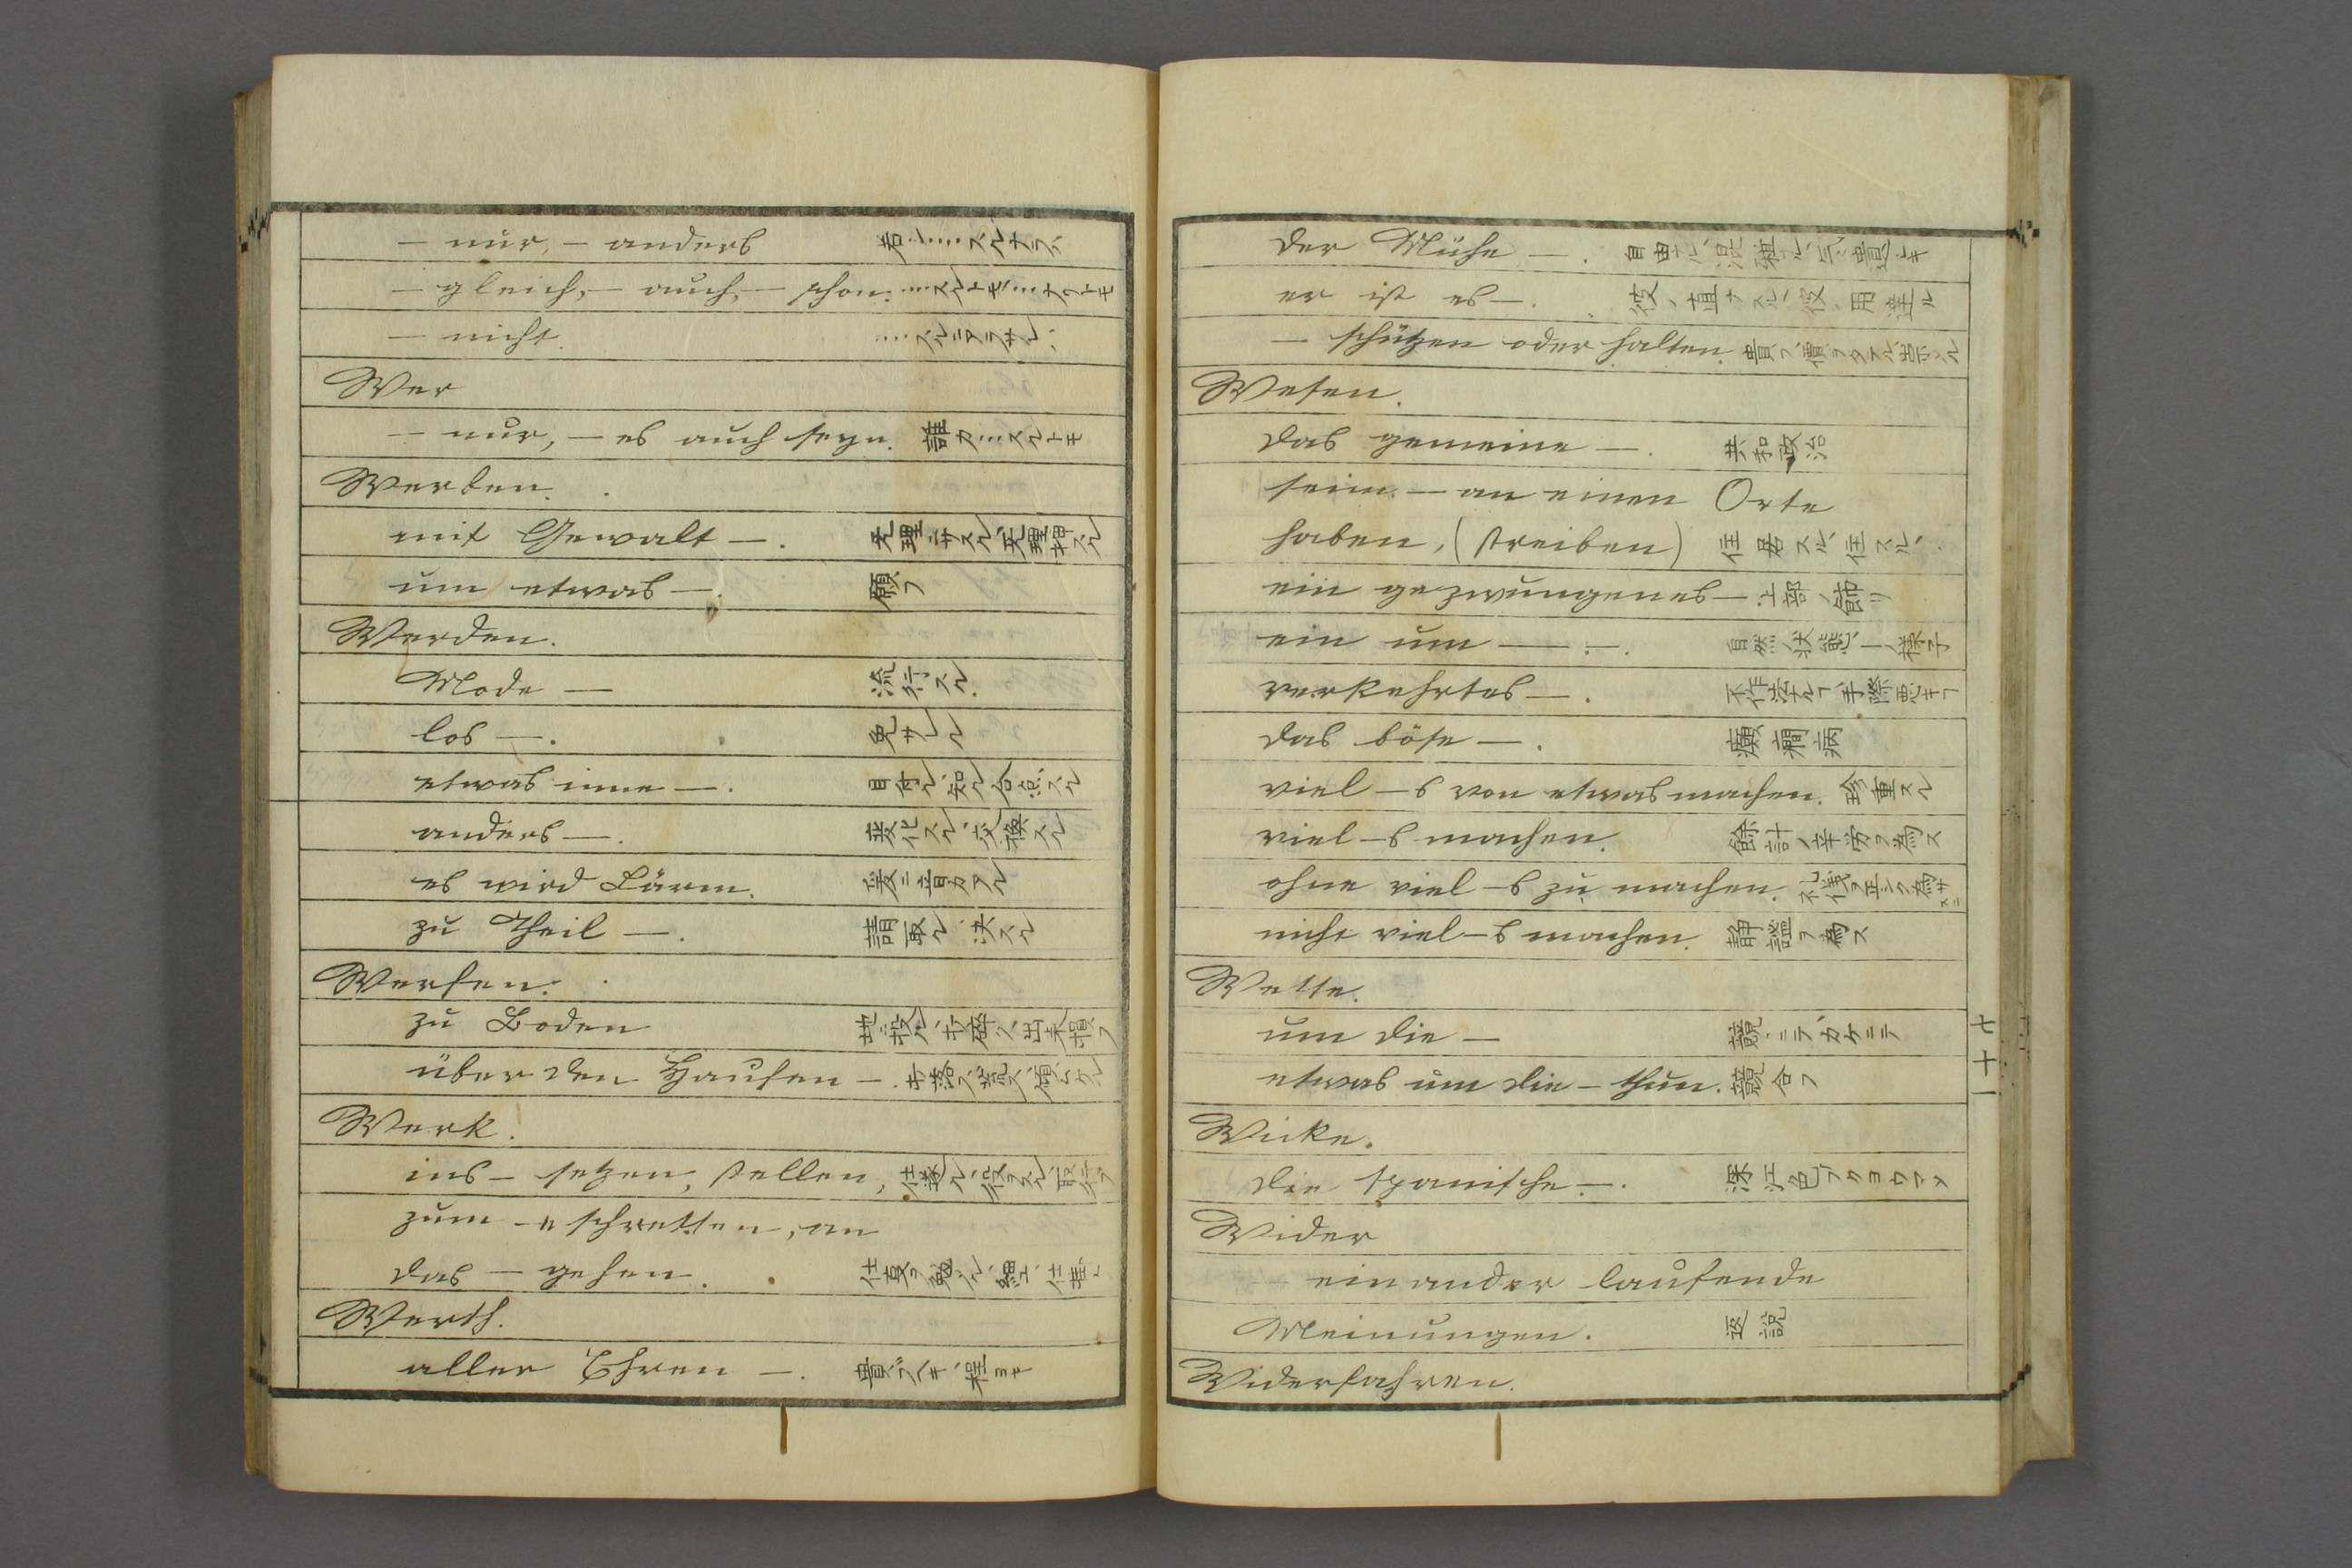 — nur, — anders 若……スルナラバ
— gleich, — auch, — schon. ……スルトモ……ナクトモ
— nicht. ……スルニアラザレバ
Wer
— nur, — es auch seyn. 誰カ……スルトモ
Werben.
mit Gewalt —. 无理ニサスル、无理押スル
um etwas —. 願フ
Werden.
Mode — 流行スル
los —. 免サレル
etwas inne —. 自得ル、知ル、合点スル
anders —. 変化スル、交換スル
es wird Lärm. 爰ニ音カアル
zu Theil —. 請取ル、決スル
Werfen.
zu Boden
über den Haufen —.
Werk.
ins — setzen, stellen,
zum —e schretten, an
das — gehen.
Werth.
aller Ehren —. 貴ブベキ、程ヨキ
der Mühe —.
er ist es —.
— schützen oder halten.
Wesen.
das gemeine —. 共和政治
sein — an einen Orte
haben, (treiben) 住居スル、住スル
ein gezwungenes — 上部ノ飾リ
ein um — —. 自然ノ状態、一ノ様子
verkehrtes —. 不作法ナルヿ、手際悪キヿ
das böse —. 癲癇病
viel —s von etwas machen. 珍重スル
viel —s machen. 餘計ノ辛労ヲ為ス
ohne viel —s zu machen.
nicht viel —s machen. 静謐ヲ為ス
Wette.
um die — 競ニテ、カケニテ
etwas um die — thun. 競合フ
Wicke.
die spanische —.
Wider
einander laufende
Meinungen. 返説
Widerfahren.
七十一